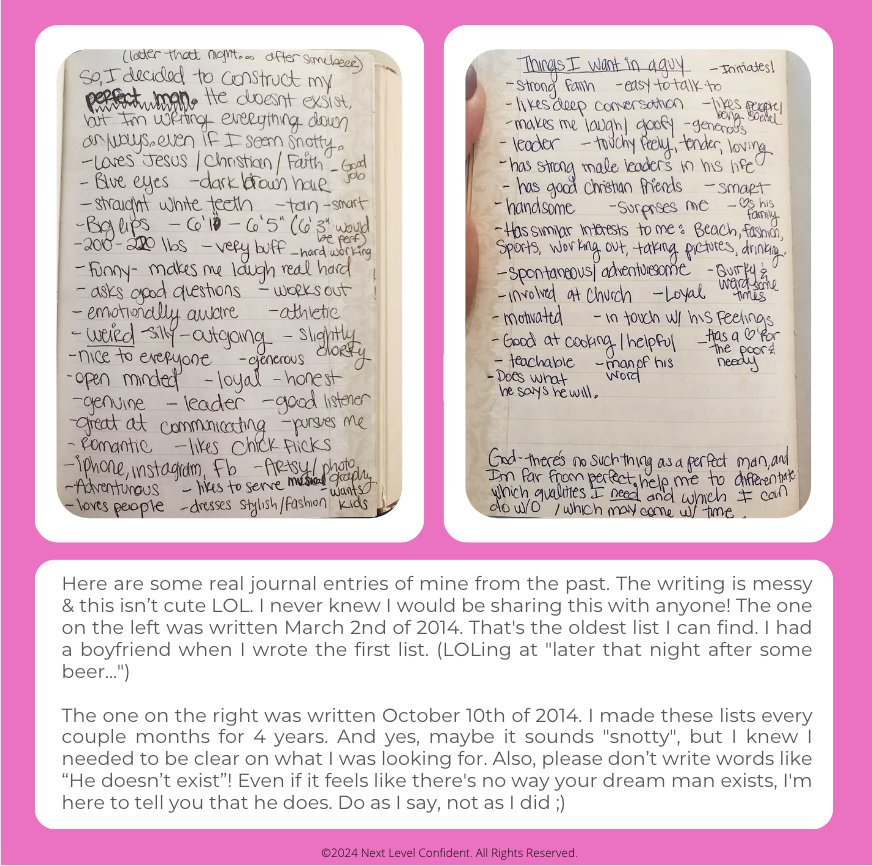 (later that night... after some beer)
So, I decided to construct my
perfect man. He doesnt exsist,
but I'm writing everything down
anyways, even if I seem snotty.
-Loves Jesus / Christian / Faith -Good job
- Blue eyes -dark brown hair
-straight white teeth -tan -smart
-Big lips - 6'1" - 6'5" (6'3" would be perf)
-200-220 lbs -very buff -hard working
-Funny- makes me laugh real hard
- asks good questions - works out
- emotionally aware -athletic
- weird -silly -outgoing - slightly dorky
-nice to everyone -generous
-open minded -loyal -honest
-genuine -leader -good listener
-great at communicating -pursues me
- Romantic -likes chick flicks
-iphone, instagram, Fb -Artsy/photography
-Adventurous - likes to serve -wants kids
- loves people -dresses stylish/fashion
Things I want in a guy -Initiates!
-strong faith -easy to talk to
-likes deep conversation -likes people/being social
-makes me laugh/ goofy -generous
- leader -touchy feely, tender, loving
-has strong male leaders in his life
- has good christian friends -smart
-handsome -Surprises me -♡s his family
-Has similar interests to me: Beach, fashion,
Sports, working out, taking pictures, drinking
-spontaneous/ adventuresome -Quirky & weird some times
-involved at church -Loyal
-motivated - in touch w/ his feelings
-Good at cooking/helpful -Has a ♡ for the poor & needy
- teachable -man of his word
-Does what
he says he will.
God- there's no such thing as a perfect man, and
Im far from perfect, help me to differentiate
which qualities I need and which I can
do w/o / which may come w/ time.
Here are some real journal entries of mine from the past. The writing is messy
& this isn’t cute LOL. I never knew I would be sharing this with anyone! The one
on the left was written March 2nd of 2014. That's the oldest list I can find. I had
a boyfriend when I wrote the first list. (LOLing at "later that night after some
beer...")
The one on the right was written October 10th of 2014. I made these lists every
couple months for 4 years. And yes, maybe it sounds "snotty", but I knew I
needed to be clear on what I was looking for. Also, please don’t write words like
“He doesn’t exist”! Even if it feels like there's no way your dream man exists, I'm
here to tell you that he does. Do as I say, not as I did ;)
©2024 Next Level Confident. All Rights Reserved.